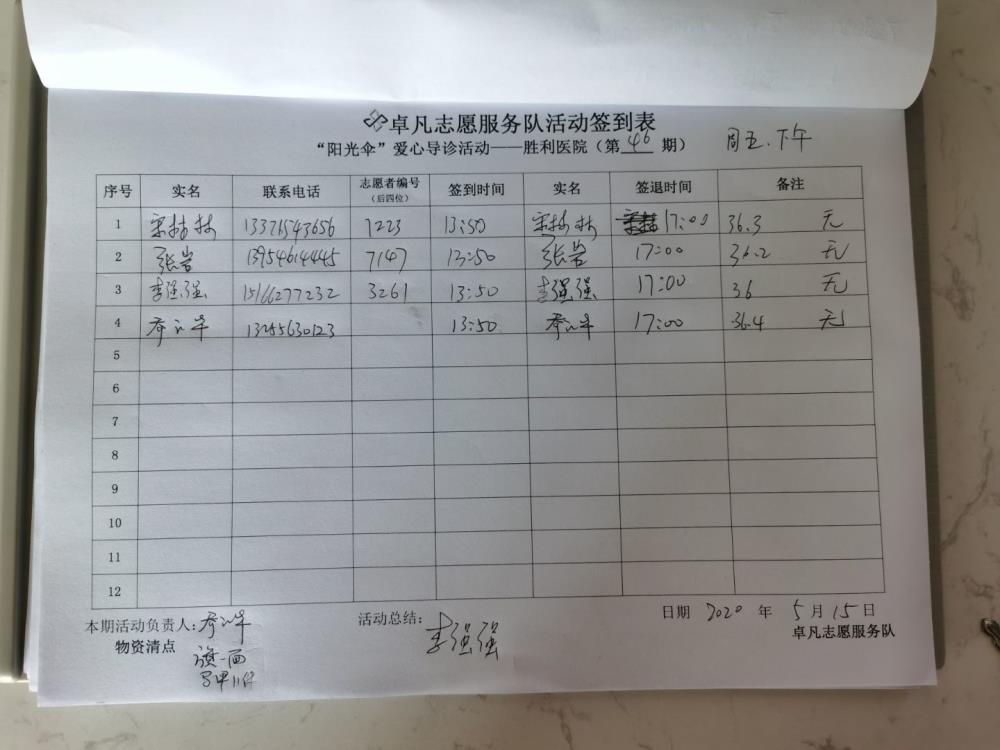 卓凡志愿服务队活动签到表
“阳光伞”爱心导诊活动——胜利医院（第 46 期） 周五.下午
序号 实名 联系电话 志愿者编号（后四位） 签到时间 实名 签退时间 备注
1 宋林林 13371543656 7223 13:50 宋林林 17:00 36.3 无
2 张岩 13954614445 7147 13:50 张岩 17:00 36.2 无
3 李强强 15166277232 3261 13:50 李强强 17:00 36 无
4 13255630123 13:50 17:00 36.4 无
5
6
7
8
9
10
11
12
本期活动负责人: 活动总结: 李强强 日期 2020 年 5 月 15 日
物资清点 旗一面 卓凡志愿服务队
马甲11件